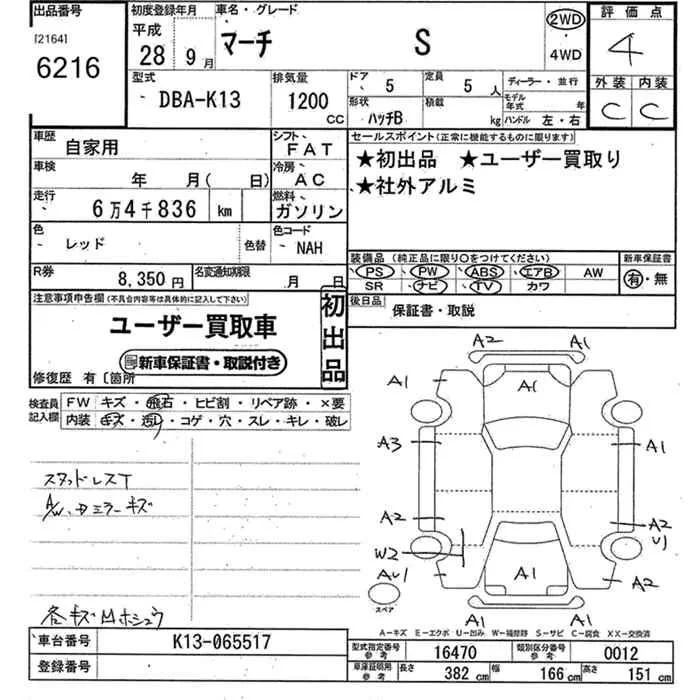 出品番号 初度登録年月 車名・グレード 評価点
[2164] 6216
平成 28 9月 マーチ S 2WD ・ 4WD 4
型式 排気量 ドア 5 定員 5人 ディーラー・並行 外装 内装
DBA-K13 1200 CC 形状 ハッチB 積載 kg モデル年式 年 ハンドル 左・右 C C
車歴 自家用 シフト FAT セールスポイント(正常に機能するものに限ります)
車検 年 月( 日) 冷房 AC ★初出品 ★ユーザー買取り
走行 6万4千836 km 燃料 ガソリン ★社外アルミ
色 レッド 色替 色コード NAH
装備品 (純正品に限り○をつけてください) 新車保証書
PS PW ABS エアB AW 有・無
SR ナビ TV カワ
R券 8,350円 名変通知期限 月 日
後日品 保証書・取説
注意事項申告欄(不具合内容等は具体的に記入して下さい)
初出品
ユーザー買取車
新車保証書・取説付き
修復歴 有〔箇所
検査員記入欄 FW キズ・飛石・ヒビ割・リペア跡・×要
内装 キズ・汚レ・コゲ・穴・スレ・キレ・破レ
スタッドレスT
A/W、ミラーキズ
A2 A1
A1 A1 A1
A3 A1
A2 A2
W2 U1
AU1 A1 A2
スペア
A1 A1
A-キズ E-エクボ U-凹み W-補修跡 S-サビ C-腐食 XX-交換済
車台番号 K13-065517
登録番号
型式指定番号 参考 16470 類別区分番号 参考 0012
車庫証明用 参考 長さ 382 cm 幅 166 cm 高さ 151 cm